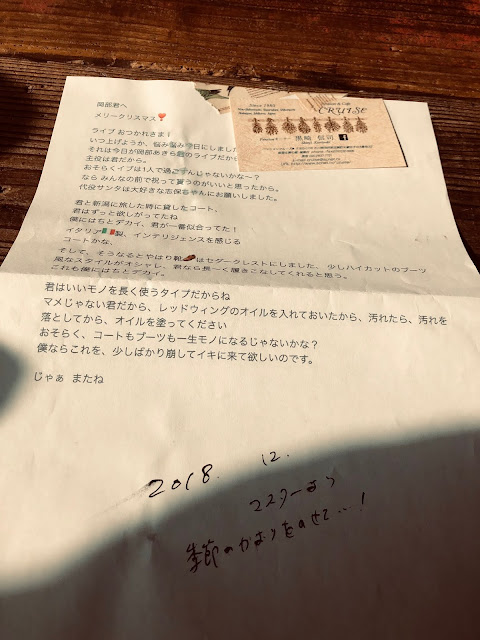 岡部君へ
メリークリスマス❣️
ライブ おつかれさま！
いつ上げようか、悩み悩み今日にしました
それは今日が岡部あきら君のライブだから
主役は君だから。
おそらくイブは1人で過ごすんじゃないかな〜？
なら みんなの前で祝って貰うのがいいと思ったから。
代役サンタは大好きな志保ちゃんにお願いしました。
君と新潟に旅した時に貸したコート、
君はずっと欲しがってたね
僕にはちとデカイ、君が一番似合ってた！
イタリア🇮🇹製、インテリジェンスを感じる
コートかな、
そして、そうなるとやはり靴👞はセダークレストにしました、少しハイカットのブーツ
風なスタイルがオシャレ、君なら長〜く履きこなしてくれると思う。
これも僕にはちとデカイ。
君はいいモノを長く使うタイプだからね
マメじゃない君だから、レッドウィングのオイルを入れておいたから、汚れたら、汚れを
落としてから、オイルを塗ってください
おそらく、コートもブーツも一生モノになるじゃないかな？
僕ならこれを、少しばかり崩してイキに来て欲しいのです。
じゃぁ またね
2018. 12.
マスターより
季節のかおりをのせて…！
Since 1983
CRUISE
黒崎